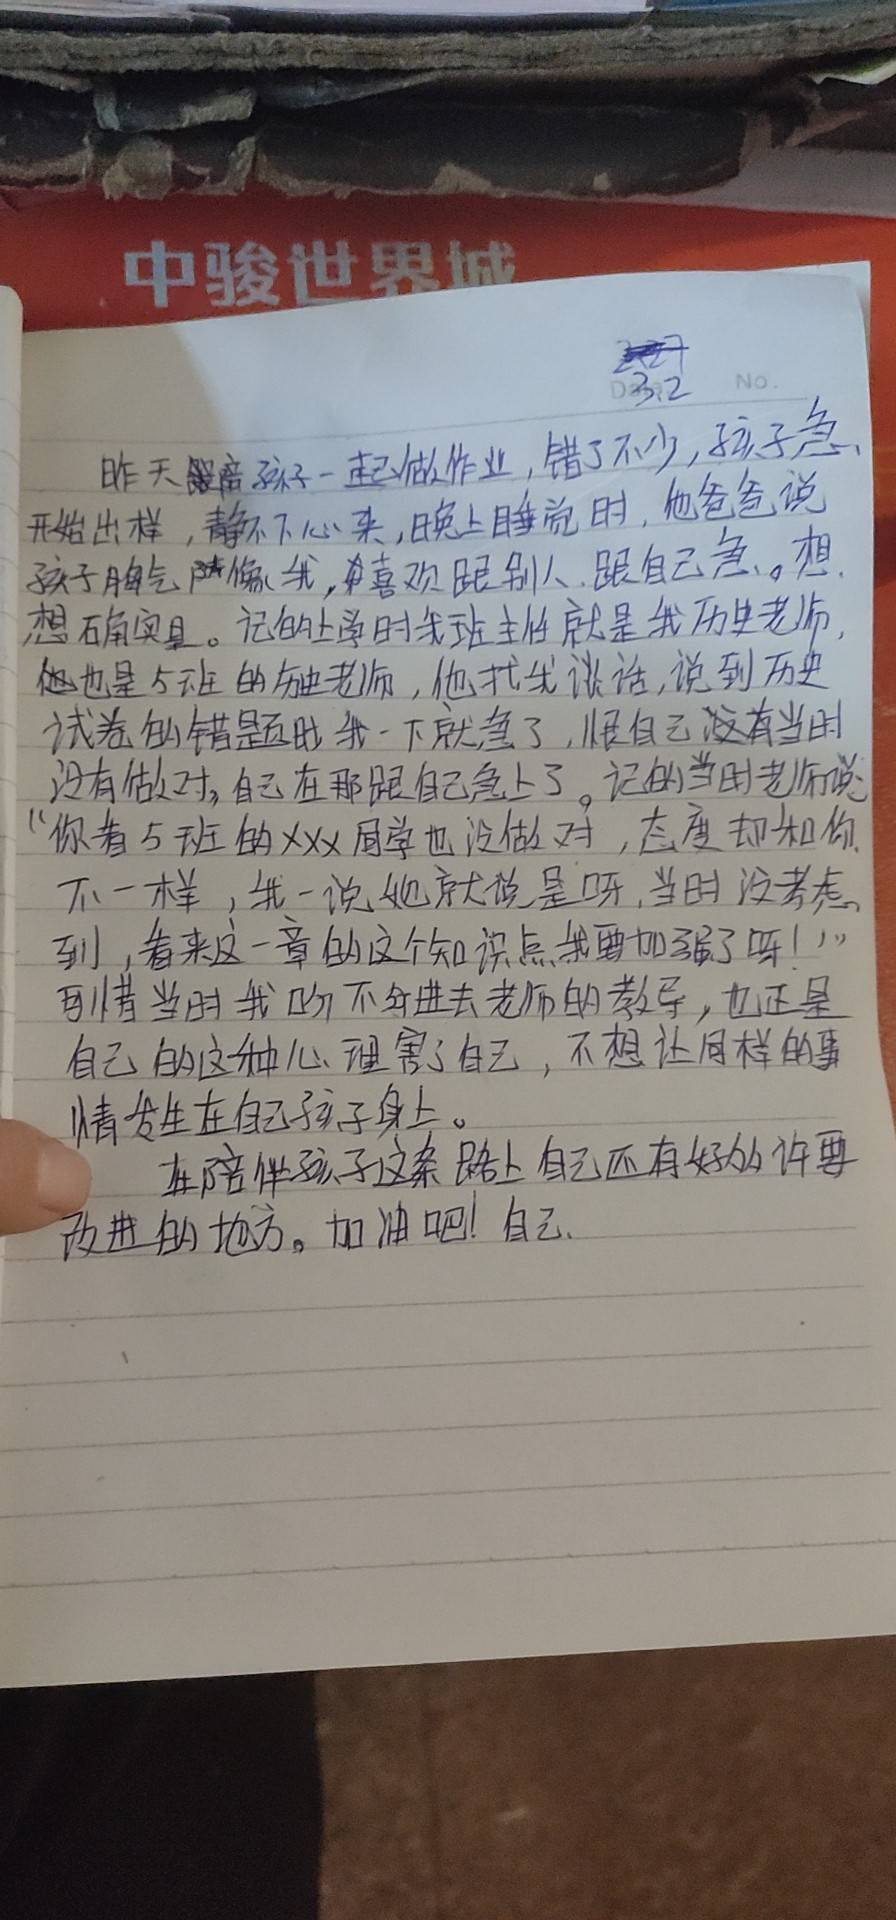 中骏世界城
3.2
No.
昨天陪孩子一起做作业，错了不少，孩子急、
开始出样，静不下心来，晚上睡觉时，他爸爸说
孩子脾气随像我，喜欢跟别人、跟自己急。想
想确实是。记的上学时我班主任就是我历史老师，
他也是5班的历史老师，他找我谈话，说到历史
试卷的错题时我一下就急了，恨自己没有当时
没有做对，自己在那跟自己急上了。记的当时老师说
“你看5班的XXX同学也没做对，态度却和你
不一样，我一说她就说是呀，当时没考虑
到，看来这一章的这个知识点我要加强了呀！”
可惜当时我吩不分进去老师的教导，也正是
自己的这种心理害了自己，不想让同样的事
情发生在自己孩子身上。
在陪伴孩子这条路上自己还有好的许要
改进的地方。加油吧！自己